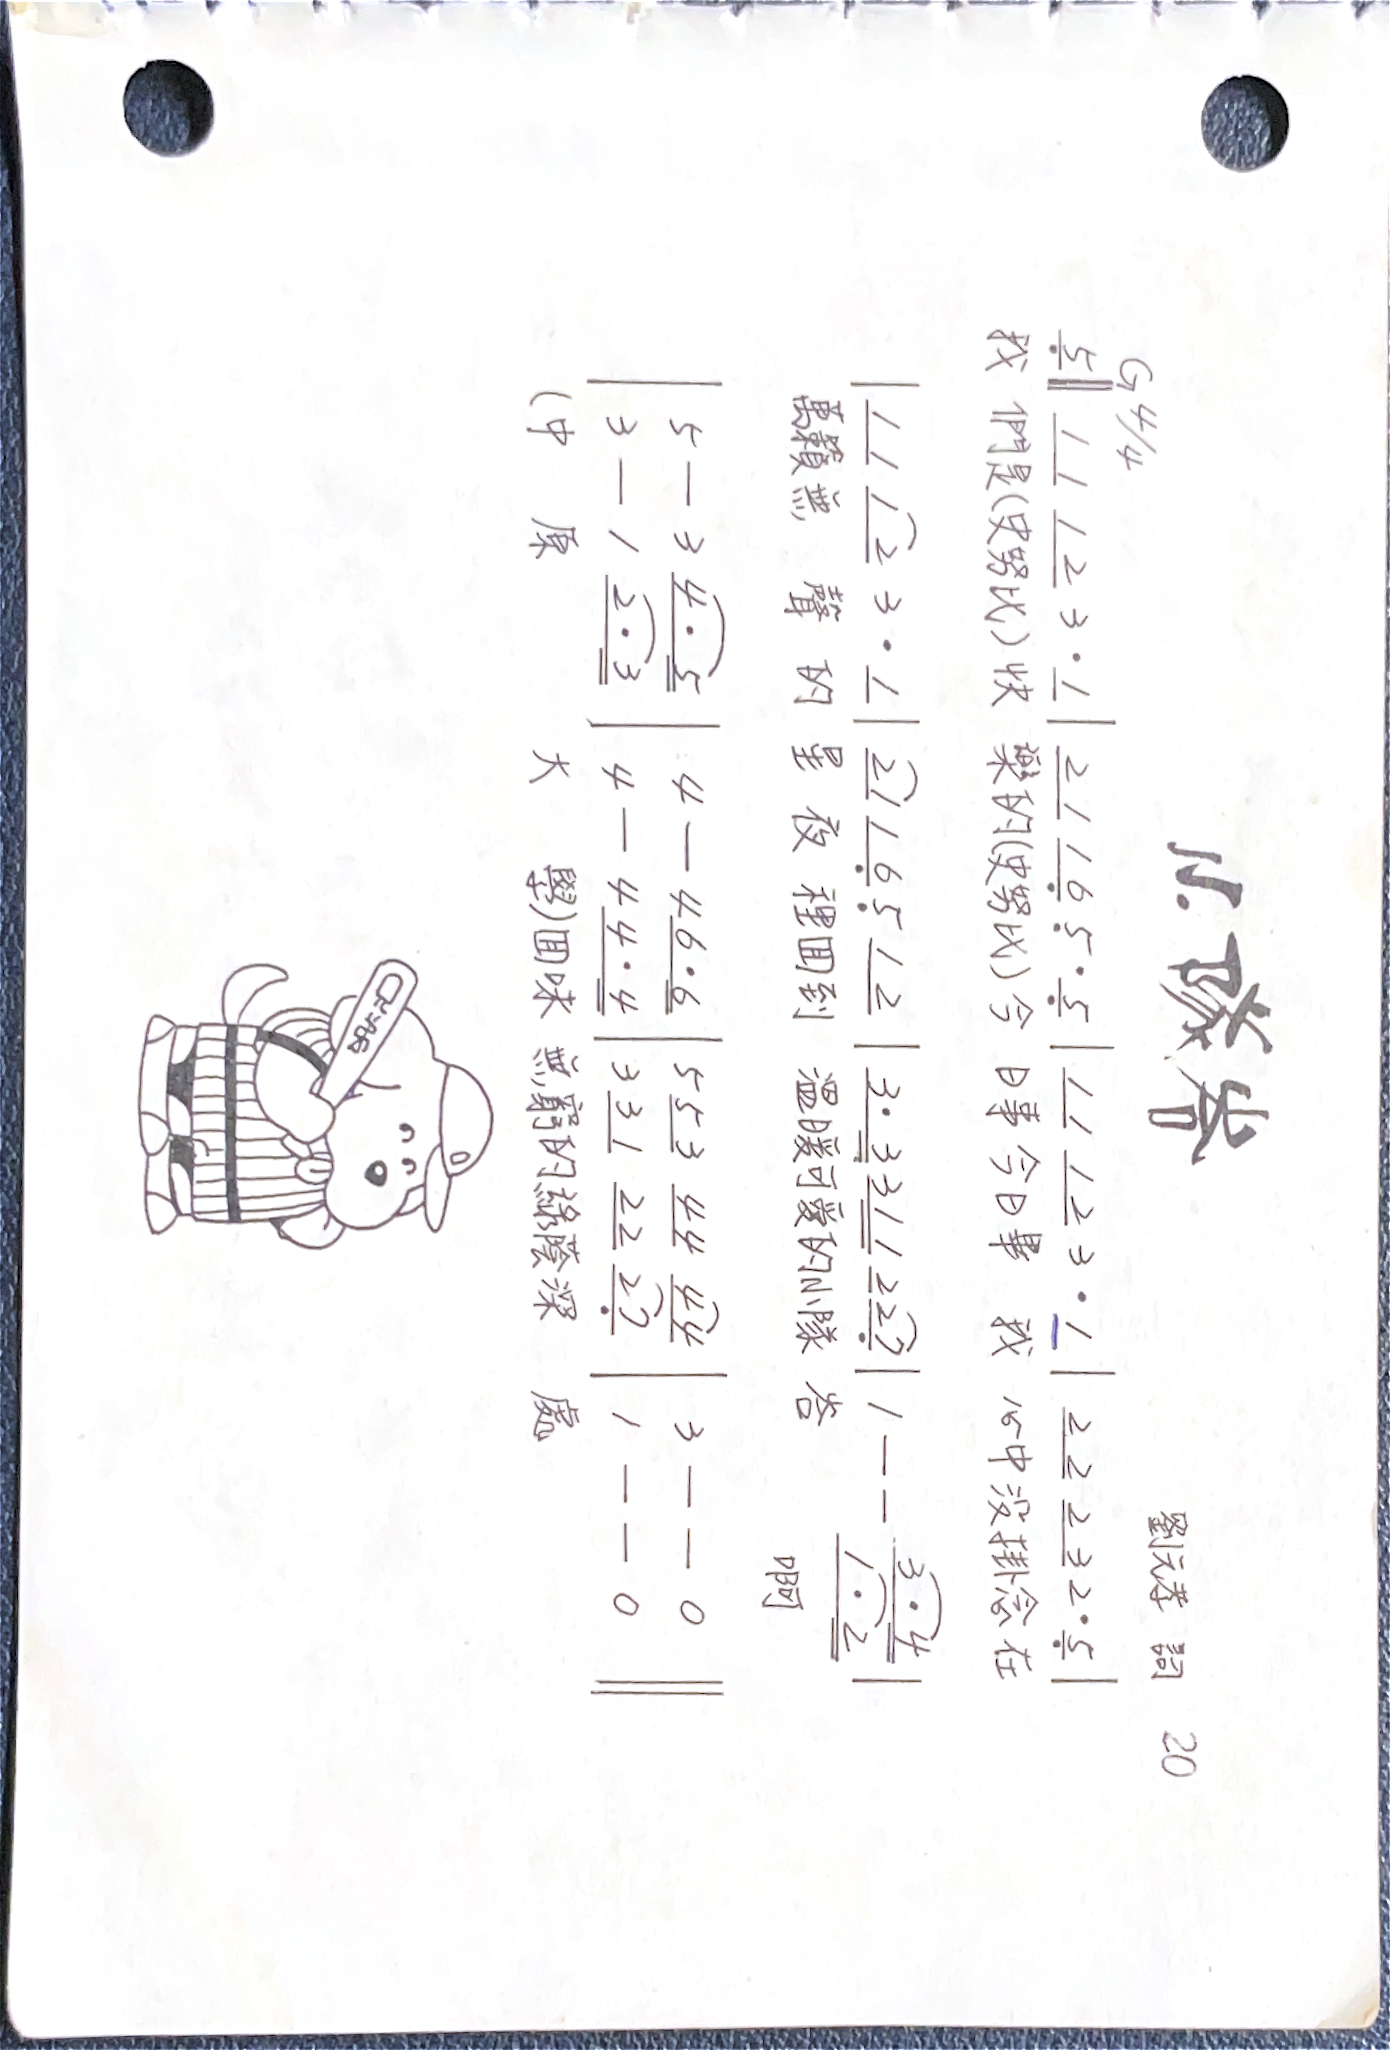 小隊峇
劉元孝 詞 20
G 4/4
5‖ 1 1 1 2 3 · 1 | 2 1 1 6 5 · 5 | 1 1 1 2 3 · 1 | 2 2 2 3 2 · 5 |
我 們是(史努比)快 樂的(史努比)今 日事今日畢 我 心中沒掛念在
| 1 1 1 2 3 · 1 | 2 1 1 6 5 1 2 | 3 · 3 3 1 1 2 2 7 | 1 — — 3 · 4 |
1 · 2
萬籟無 聲 的 星 夜 裡回到 溫暖可愛的小隊 峇
啊
| 5 — 3 4 · 5 | 4 — 4 6 · 6 | 5 5 3 4 4 4 4 | 3 — — 0 ‖
3 — 1 2 · 3 | 4 — 4 4 · 4 | 3 3 1 2 2 2 7 | 1 — — 0
(中 原 大 學)回味 無窮的綠蔭深 處